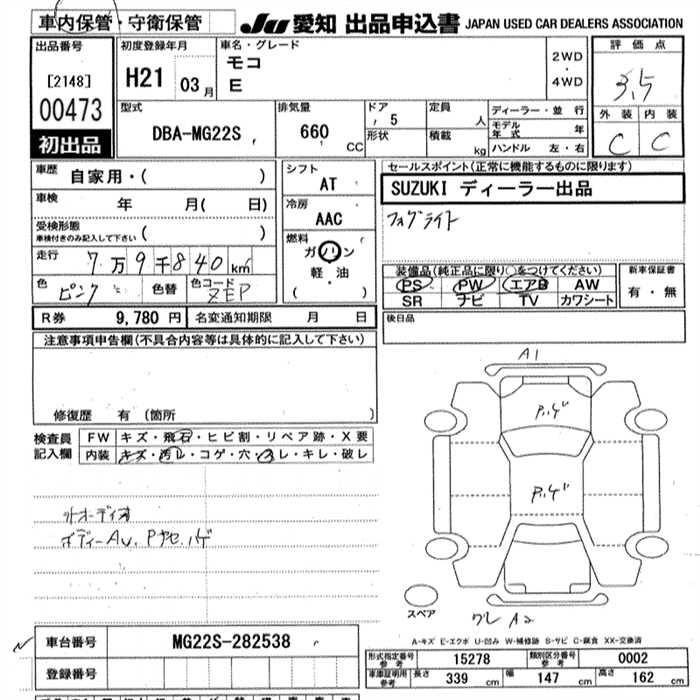 車内保管・守衛保管
JU 愛知 出品申込書 JAPAN USED CAR DEALERS ASSOCIATION
出品番号
[2148]
00473
初出品
初度登録年月
H21 03月
車名・グレード
モコ
E
2WD
・
4WD
評価点
3.5
外装 内装
C C
型式
DBA-MG22S
排気量
660 CC
ドア
5
形状
定員
人
積載
kg
ディーラー・並行
モデル年式 年
ハンドル 左・右
車歴 自家用・( )
車検 年 月( 日)
受検形態
車検付きのみ記入して下さい ( )
走行 7万9千840km
色 ピンク 色替 色コード ZEP
シフト
AT
冷房
AAC
燃料
ガソリン
軽・油
( )
セールスポイント(正常に機能するものに限ります)
SUZUKI ディーラー出品
フォグライト
装備品(純正品に限り○をつけてください)
PS PW エアB AW
SR ナビ TV カワシート
新車保証書
有・無
後日品
R券 9,780 円 名変通知期限 月 日
注意事項申告欄(不具合内容等は具体的に記入して下さい)
修復歴 有 (箇所 )
検査員記入欄
FW キズ・飛石・ヒビ割・リペア跡・X要
内装 キズ・汚レ・コゲ・穴・スレ・キレ・破レ
外オーディオ
ボディーAU、Pヤセ、ハゲ
A1
P.ハゲ
P.ハゲ
スペア
クレ A2
A-キズ E-エクボ U-凹み W-補修跡 S-サビ C-腐食 XX-交換済
車台番号 MG22S-282538
登録番号
形式指定番号 参考 15278 類別区分番号 参考 0002
車庫証明用 参考 長さ 339 cm 幅 147 cm 高さ 162 cm